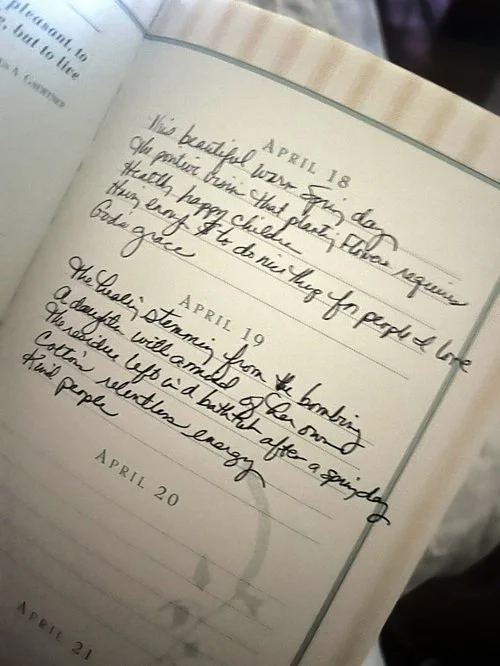 pleasant, to
, but to live
APRIL 18
This beautiful warm Spring day
The positive vision that planting flowers requires
Healthy happy children
Having enough $ to do nice things for people I love
God's grace
APRIL 19
The healing stemming from the bombing
A daughter with a mind of her own
The residue left in a bathtub after a spring day
Colton's relentless energy
Kind people
APRIL 20
APRIL 21